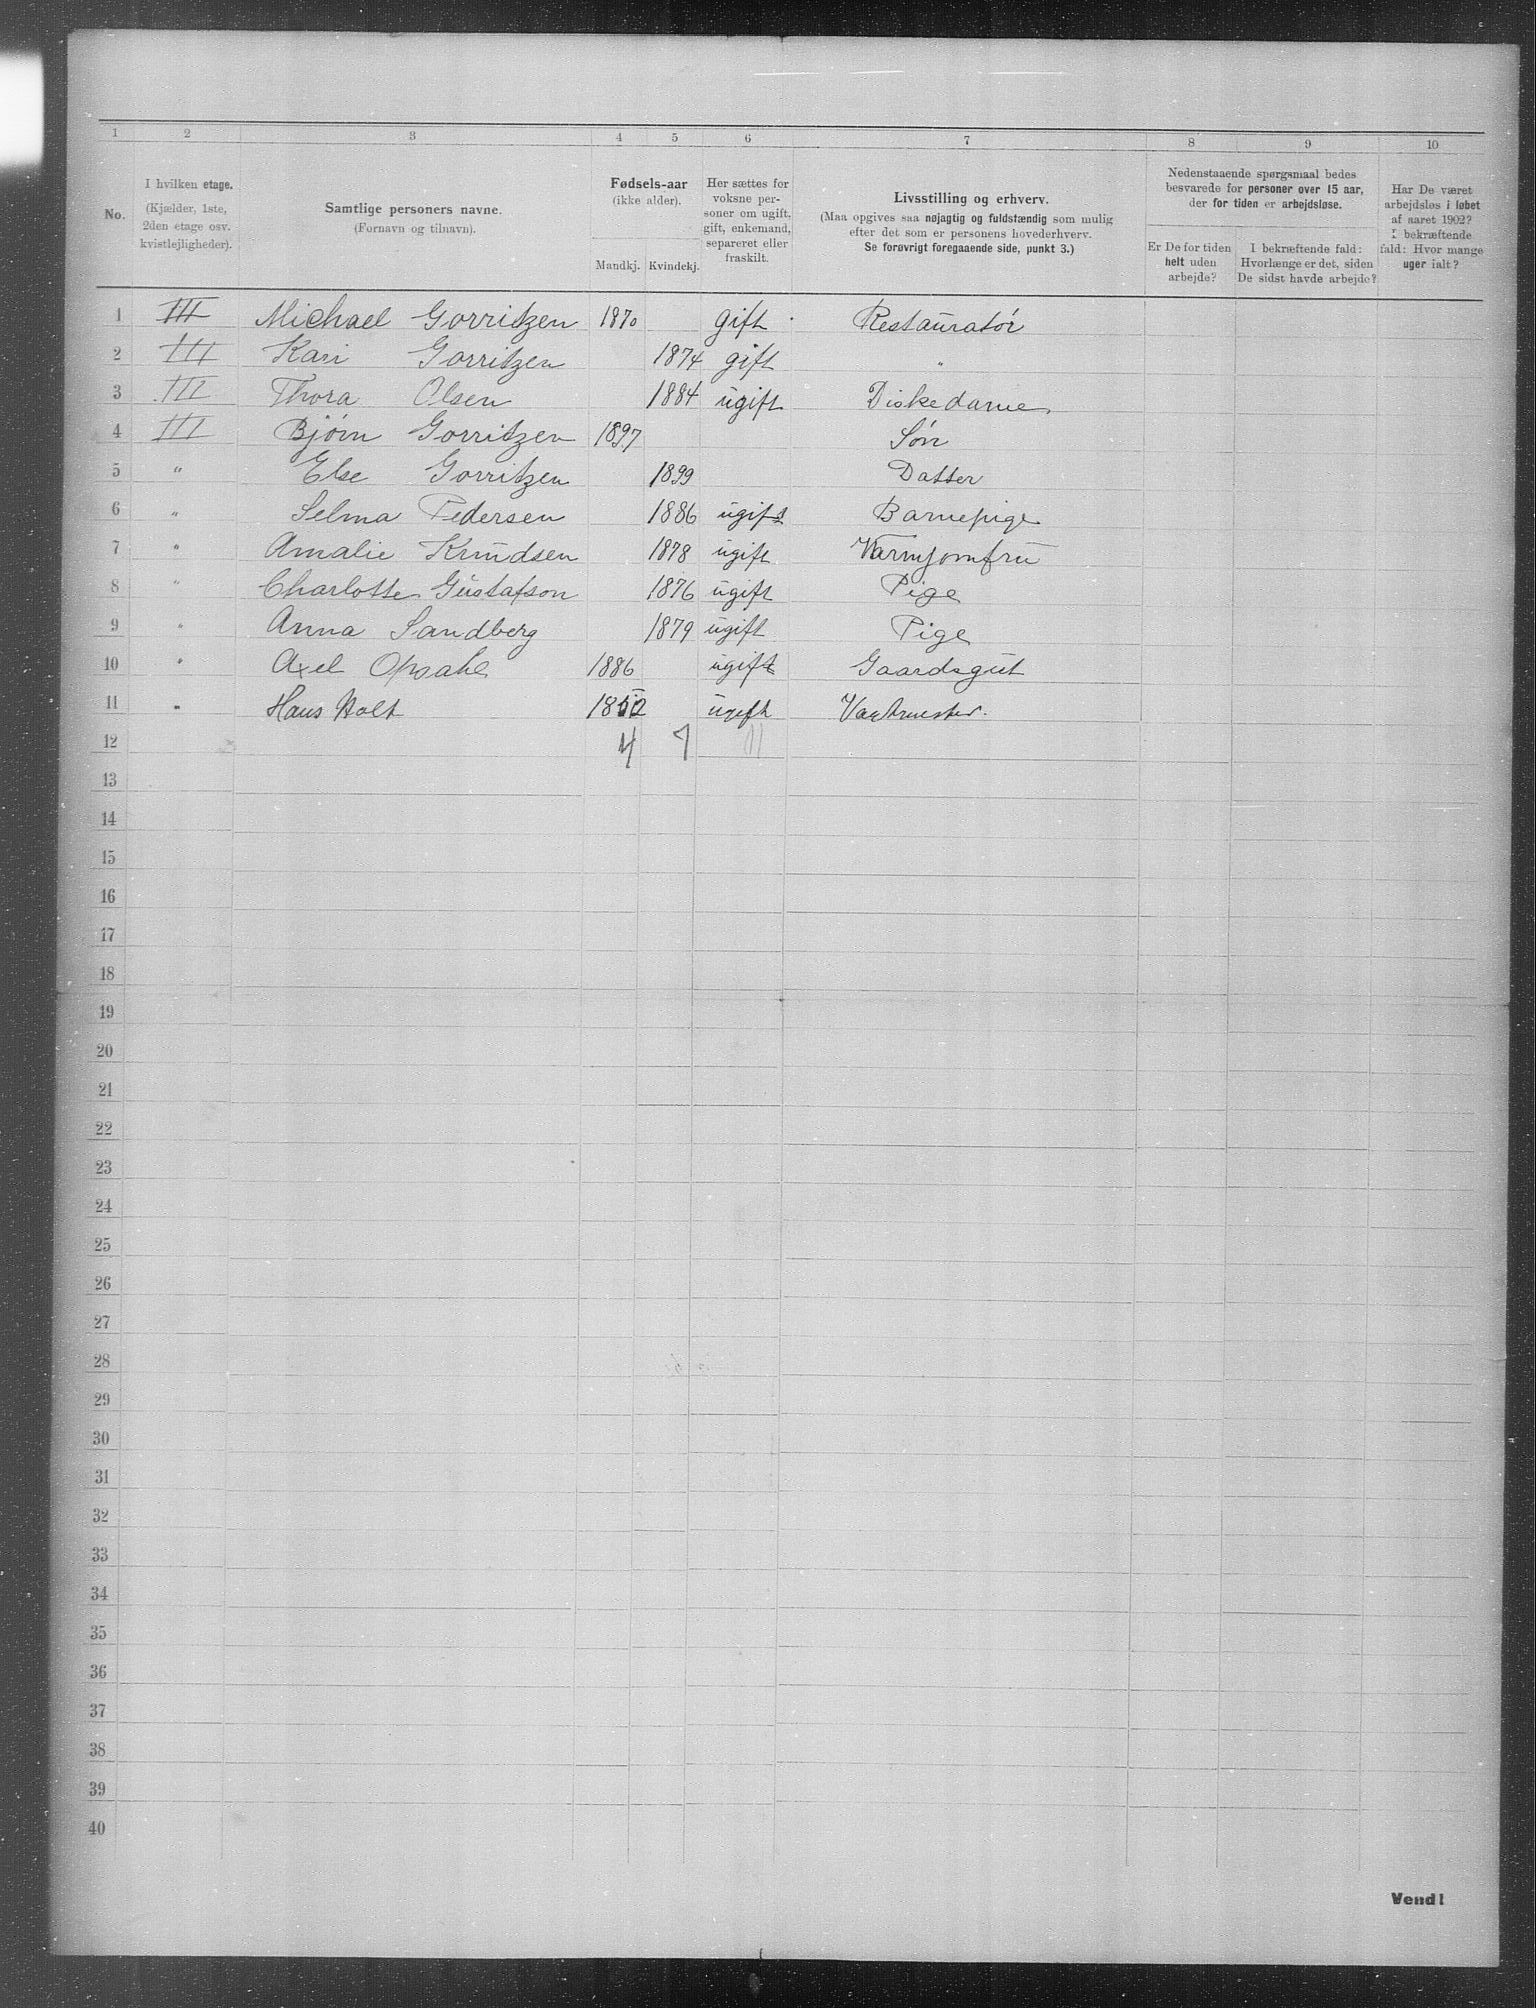 1 2 3 4 5 6 7 8 9 10
No.
I hvilken etage.
(Kjælder, 1ste,
2den etage osv.
kvistlejligheder).
Samtlige personers navne.
(Fornavn og tilnavn).
Fødsels-aar
(ikke alder).
Mandkj. Kvindekj.
Her sættes for
voksne per-
soner om ugift,
gift, enkemand,
separeret eller
fraskilt.
Livsstilling og erhverv.
(Maa opgives saa nøjagtig og fuldstændig som mulig
efter det som er personens hovederhverv.
Se forøvrigt foregaaende side, punkt 3.)
Nedenstaaende spørgsmaal bedes
besvarede for personer over 15 aar,
der for tiden er arbejdsløse.
Er De for tiden
helt uden
arbejde?
I bekræftende fald:
Hvorlænge er det, siden
De sidst havde arbejde?
Har De været
arbejdsløs i løbet
af aaret 1902?
I bekræftende
fald: Hvor mange
uger ialt?
1 III Michael Gorritzen 1870 gift Restauratør
2 III Kari Gorritzen 1874 gift "
3 III Thora Olsen 1884 ugift Diskedame
4 III Bjørn Gorritzen 1897 Søn
5 " Else Gorritzen 1899 Datter
6 " Selma Pedersen 1886 ugift Barnepige
7 " Amalie Knudsen 1878 ugift Varmjomfru
8 " Charlotte Gustafson 1876 ugift Pige
9 " Anna Sandberg 1879 ugift Pige
10 " Axel Opsahl 1886 ugift Gaardsgut
11 " Hans Holt 1852 ugift Vagtmester.
12 4 7 11
13
14
15
16
17
18
19
20
21
22
23
24
25
26
27
28
29
30
31
32
33
34
35
36
37
38
39
40
Vend!